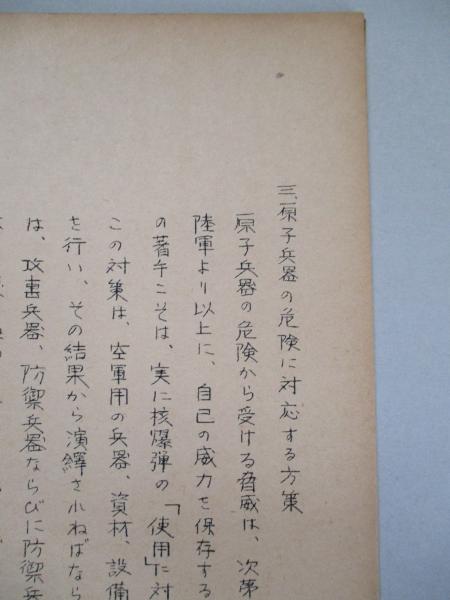 三、原子兵器の危険に対応する方策
原子兵器の危険から受ける脅威は、次第
陸軍より以上に、自己の威力を保存する
の著手こそは、実に核爆弾の「使用」に対
この対策は、空軍用の兵器、資材、設備
を行い、その結果から演繹されねばなら
は、攻撃兵器、防禦兵器ならびに防禦兵